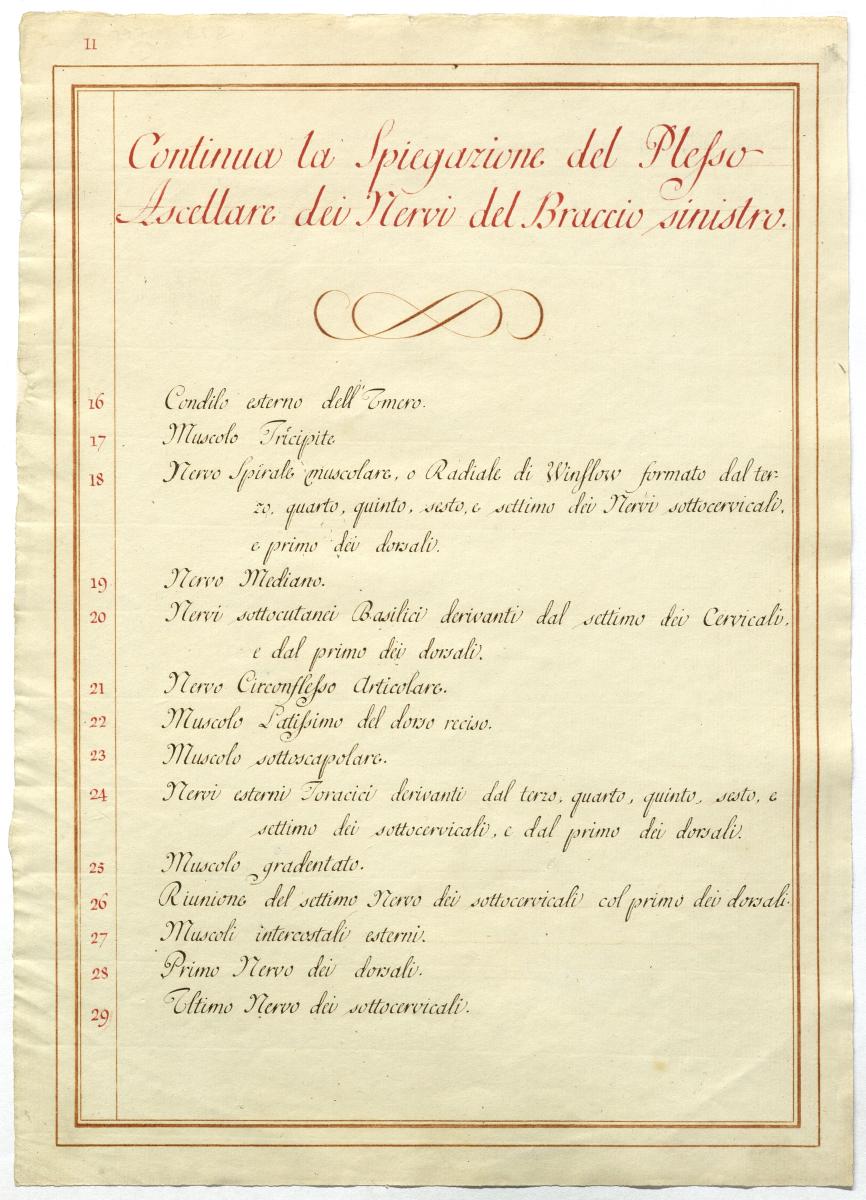 11
Continua la Spiegazione del Plesso
Ascellare dei Nervi del Braccio sinistro.
16 Condilo esterno dell'Umero.
17 Muscolo Tricipite
18 Nervo Spirale muscolare, o Radiale di Winslow formato dal ter-
zo, quarto, quinto, sesto, e settimo dei Nervi sottocervicali,
e primo dei dorsali.
19 Nervo Mediano.
20 Nervi sottocutanei Basilici derivanti dal settimo dei Cervicali,
e dal primo dei dorsali.
21 Nervo Circonflesso Articolare.
22 Muscolo Latissimo del dorso reciso.
23 Muscolo sottoscapolare.
24 Nervi esterni Toracici derivanti dal terzo, quarto, quinto, sesto, e
settimo dei sottocervicali, e dal primo dei dorsali.
25 Muscolo gradentato.
26 Riunione del settimo Nervo dei sottocervicali col primo dei dorsali.
27 Muscoli intercostali esterni.
28 Primo Nervo dei dorsali.
29 Ultimo Nervo dei sottocervicali.